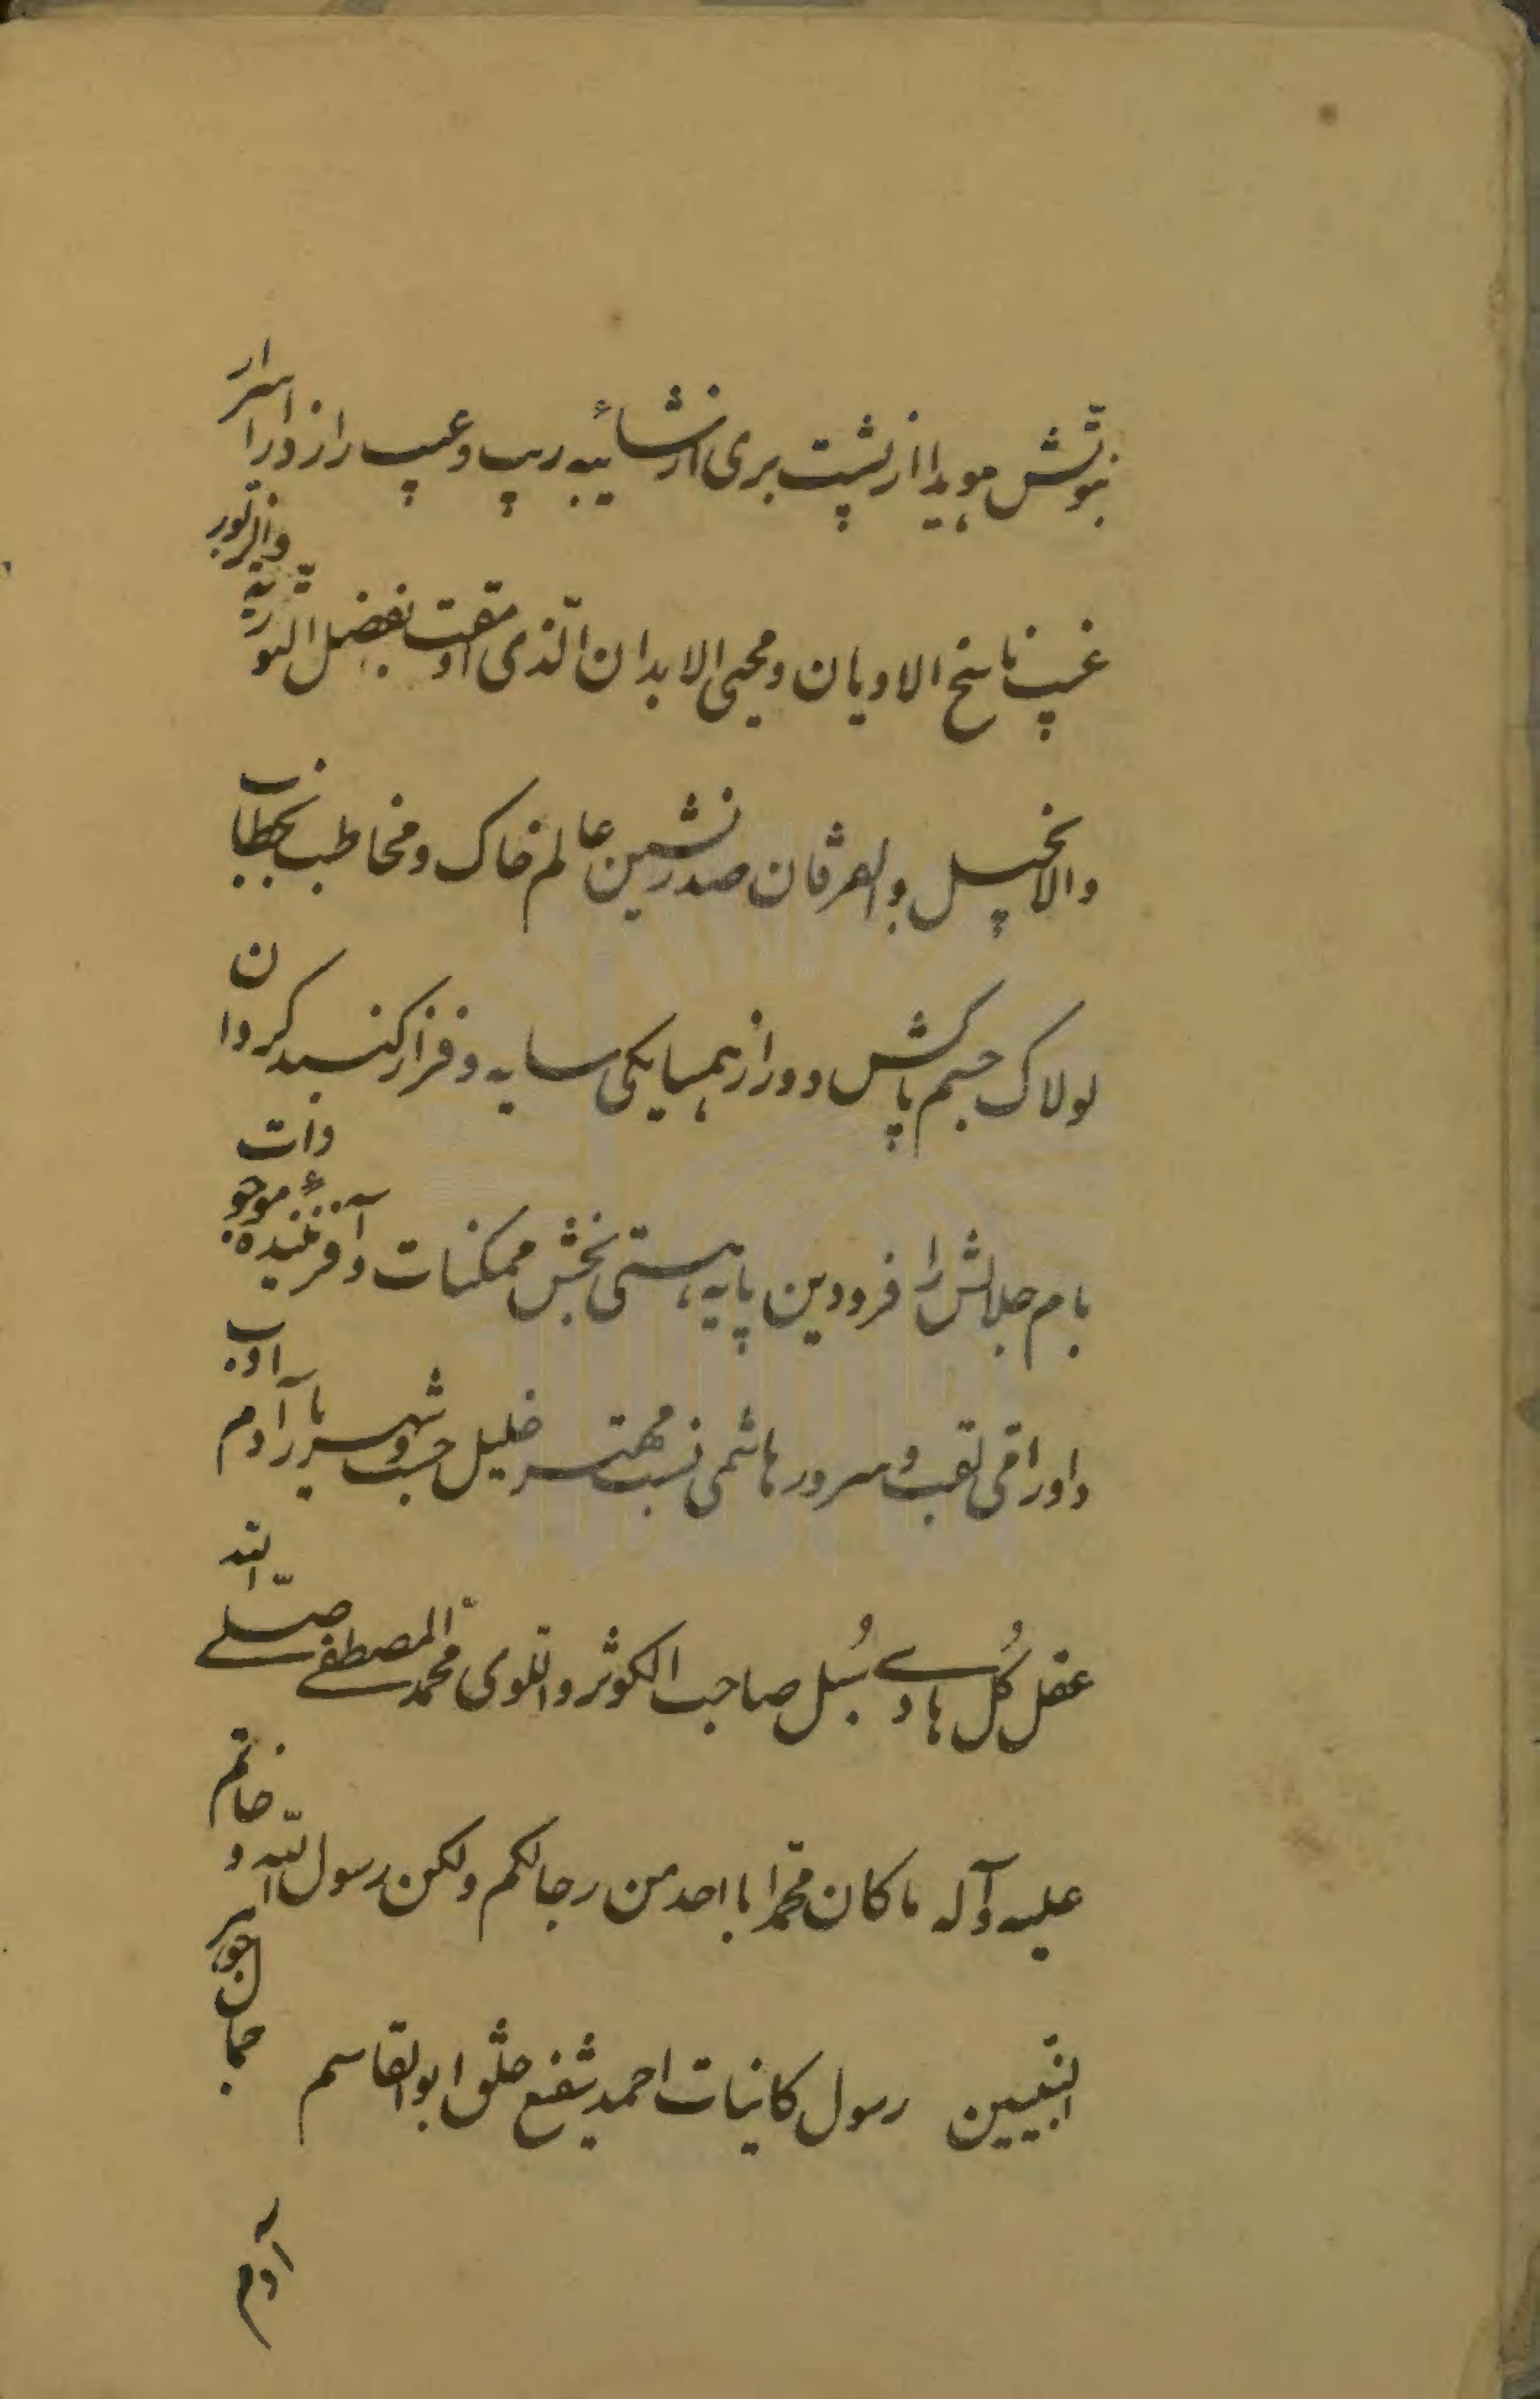 نبوّتش هویدا از پشت بری از شائیبه ریب و عیب رازدار اسرار
غیب ناسخ الادیان و محیی الابدان الّذی اوتیت بفضل التوریة والزبور
والانجیل والفرقان صدرنشین عالم خاک و مخاطب بخطاب
لولاک جسم پاکش دور از همسایکی سایه و فراز کنبد کردان
بام جلالش را فرودین پایه هستی بخش ممکنات و آفرنینندهٔ موجودات
داور امّی لقب و سرور هاشمی نسب مهتر خلیل حسب و شهریار آدم ادب
عقل کُل هادے سُبُل صاحب الکوثر واللوی محمّد المصطفے صلّے اللّه
علیه وآله ما کان محمّد ابا احد من رجالکم ولکن رسول اللّه و خاتم
النّبییین رسول کاینات احمد شفیع خلق ابوالقاسم جهان جوهر
آدم